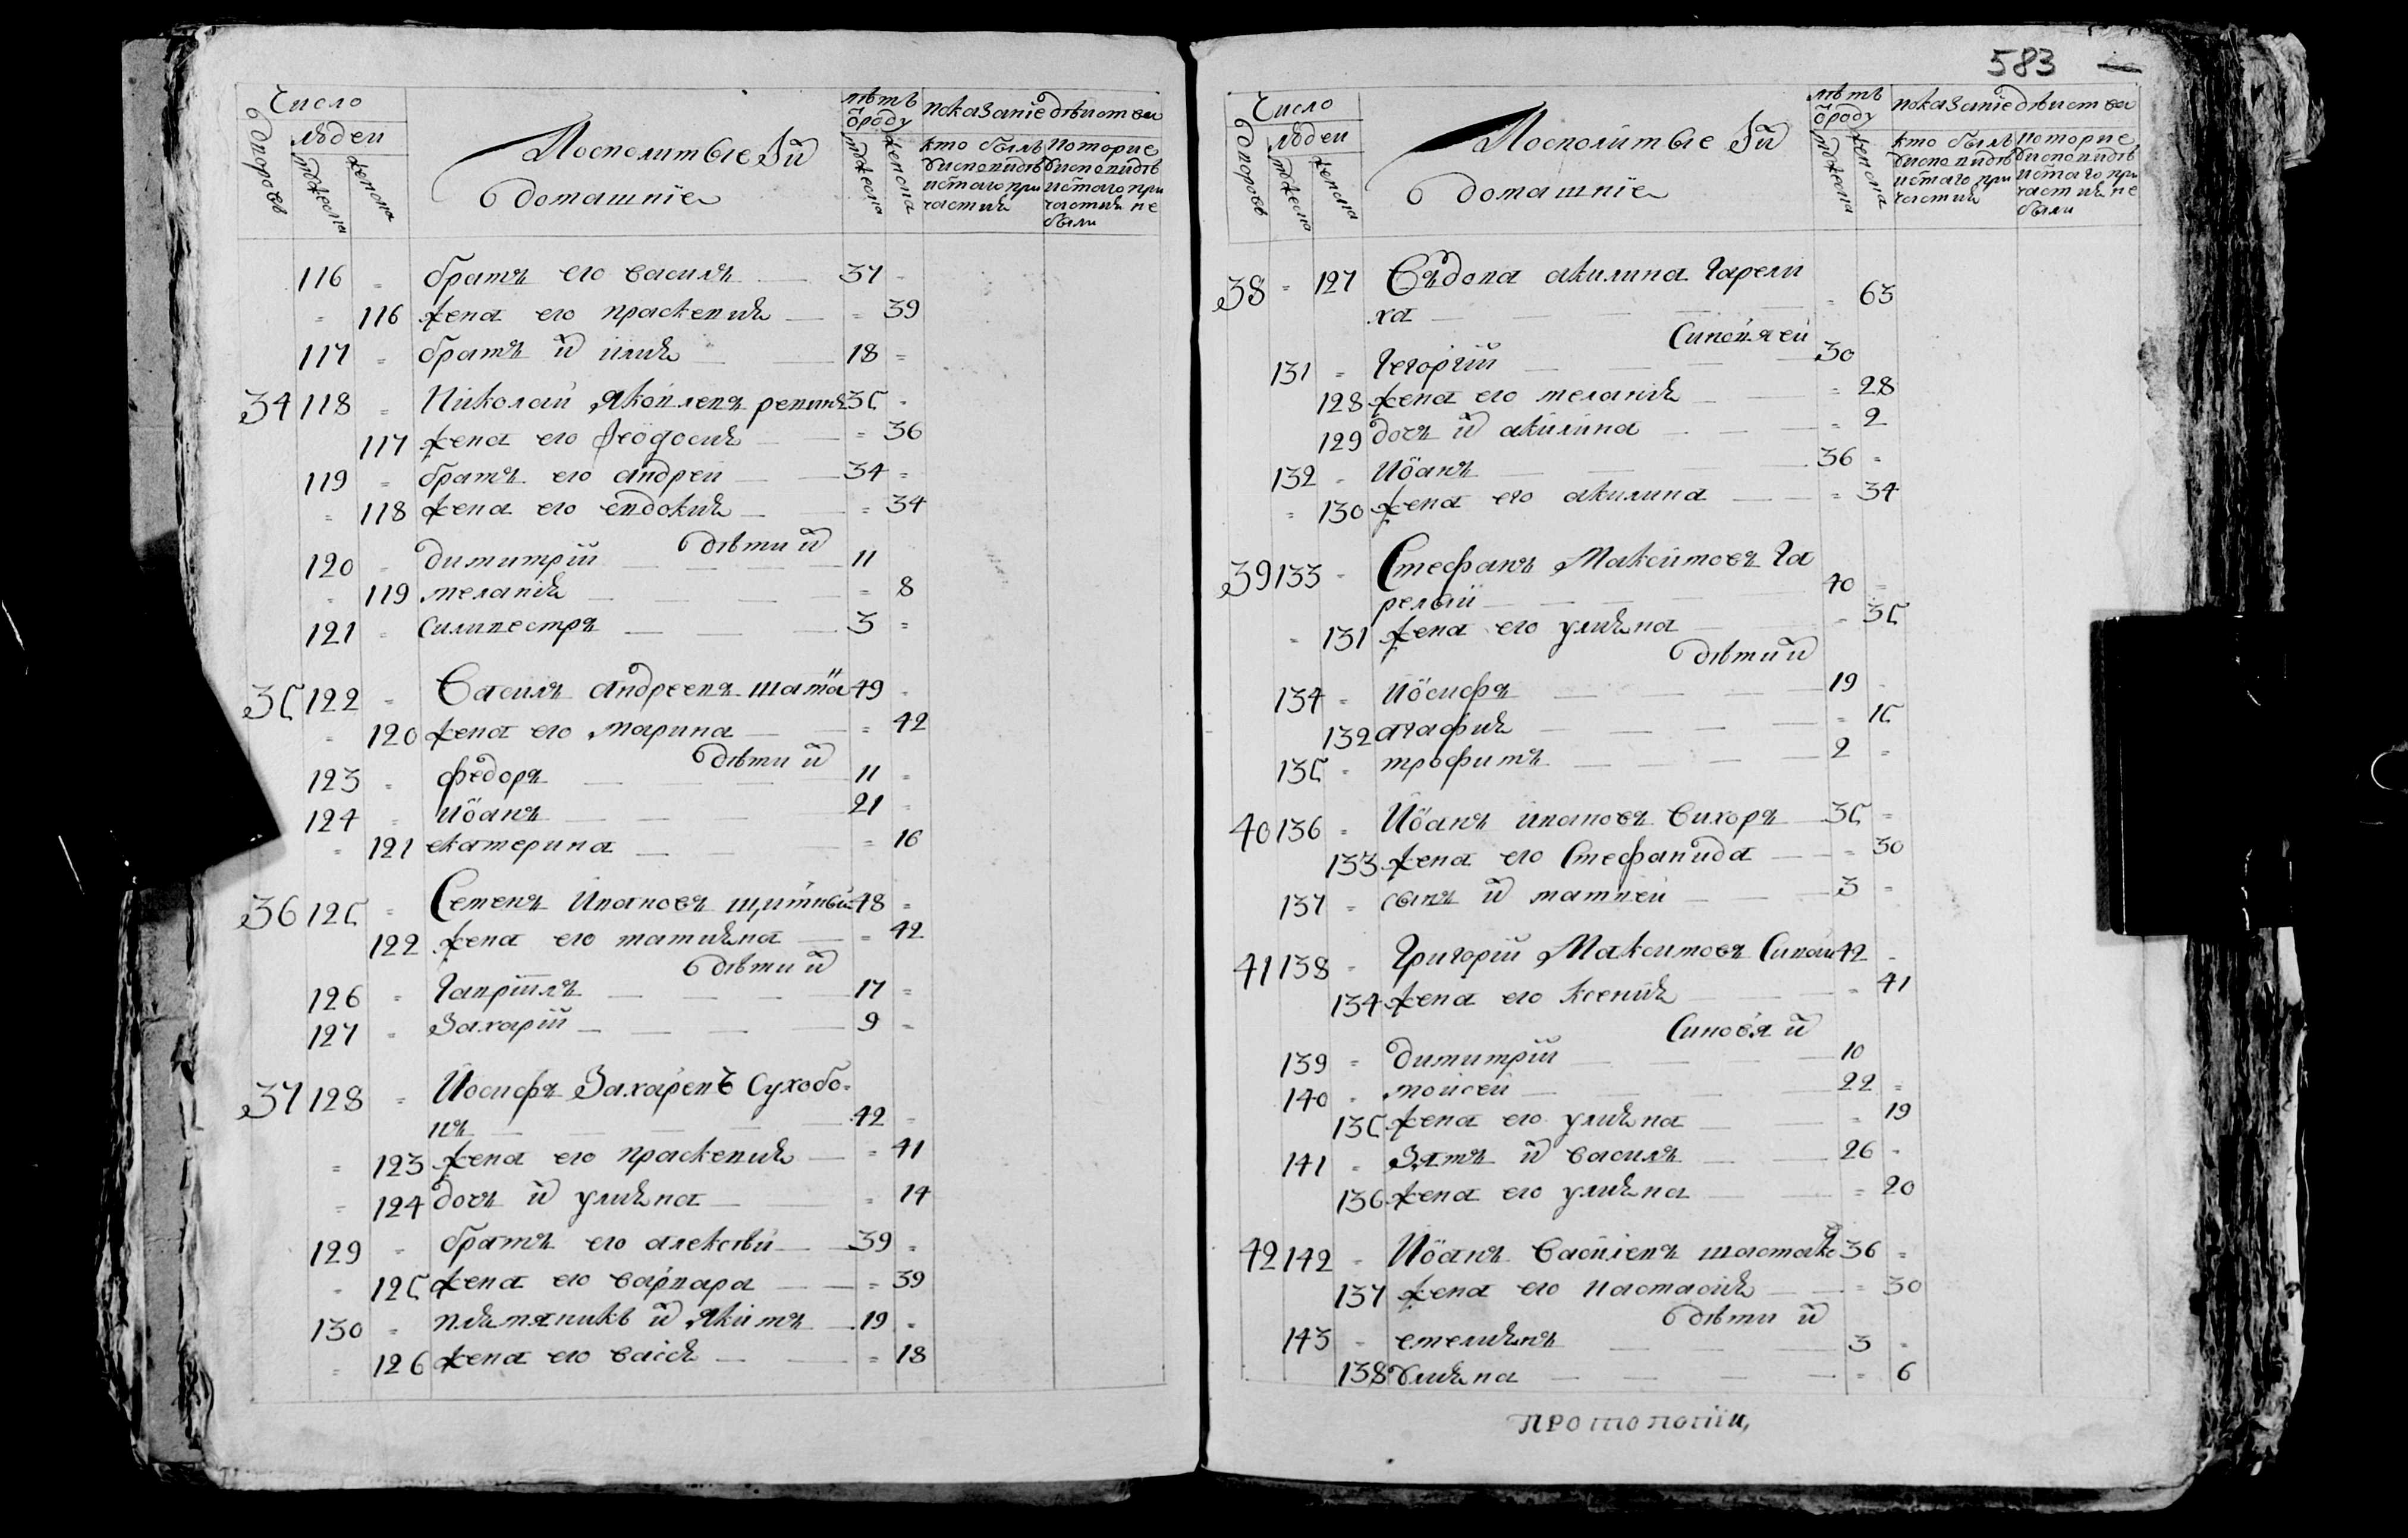 Число
людеи
дворовъ
мужеска
женска
Посполитые Ӏй
домашнїе
лѣтъ
ѿроду
мужеска
женска
показанїе дѣиства
кто былъ
у исповиди
и с̃таго при
частия
которие
у исповидѣ
и с̃таго при
частия не
были
116 братъ его василь 37
116 жена его праскевия 39
117 братъ и͠ илия 18
34 118 Николаи Яковлевъ репинъ 35
117 жена его феѡдосия 36
119 братъ его андреи 34
118 жена его евдокия 34
дѣти и͠
120 димитрїй 11
119 меланія 8
121 силивестръ 3
35 122 Василь андреевъ шатѡ 49
120 жена его марина 42
дѣти и͠
123 федоръ 11
124 Иѡанъ 21
121 екатерина 16
36 125 Семенъ Ивановъ щитный 48
122 жена его татияна 42
дѣти и͠
126 Гаврїилъ 17
127 Захарїй 9
37 128 Иосифъ Захаренъ Сухобо-
нъ 42
123 жена его праскевия 41
124 дочь и͠ улияна 14
129 братъ его алексѣй 39
125 жена его варвара 39
130 племяникъ и͠ якимъ 19
126 жена его васса 18
583
Число
людеи
дворовъ
мужеска
женска
Посполитые Ӏй
домашнїе
лѣтъ
ѿроду
мужеска
женска
показанїе дѣиства
кто былъ
у исповидѣ
и с̃таго при
частия
которие
у исповидѣ
и с̃таго при
частия не
были
38 127 Въдова акилина Гарели
ха 63
Синовя еи
131 Гегоргїй 30
128 жена его меланія 28
129 дочь и͠ акилина 2
132 Иѡанъ 36
130 жена его акилина 34
39 133 Стефанъ Максимовъ Га
релый 40
131 жена его улияна 35
дѣти и͠
134 Иѡсифъ 19
132 агафия 15
135 трофимъ 2
40 136 Иѡанъ ивановъ Вихоръ 35
133 жена его Стефанида 30
137 сынъ и͠ матвеи 3
41 138 Григорїй Максимовъ Сивой 42
134 жена его ксения 41
Синовя и͠
139 димитрїй 10
140 моисеи 22
135 жена его улияна 19
141 Зять и͠ василь 26
136 жена его улияна 20
42 142 Иѡанъ Васїлевъ шастакъ 36
137 жена его настасия 30
дѣти и͠
143 емелиянъ 3
138 улияна 6
протопопїи,